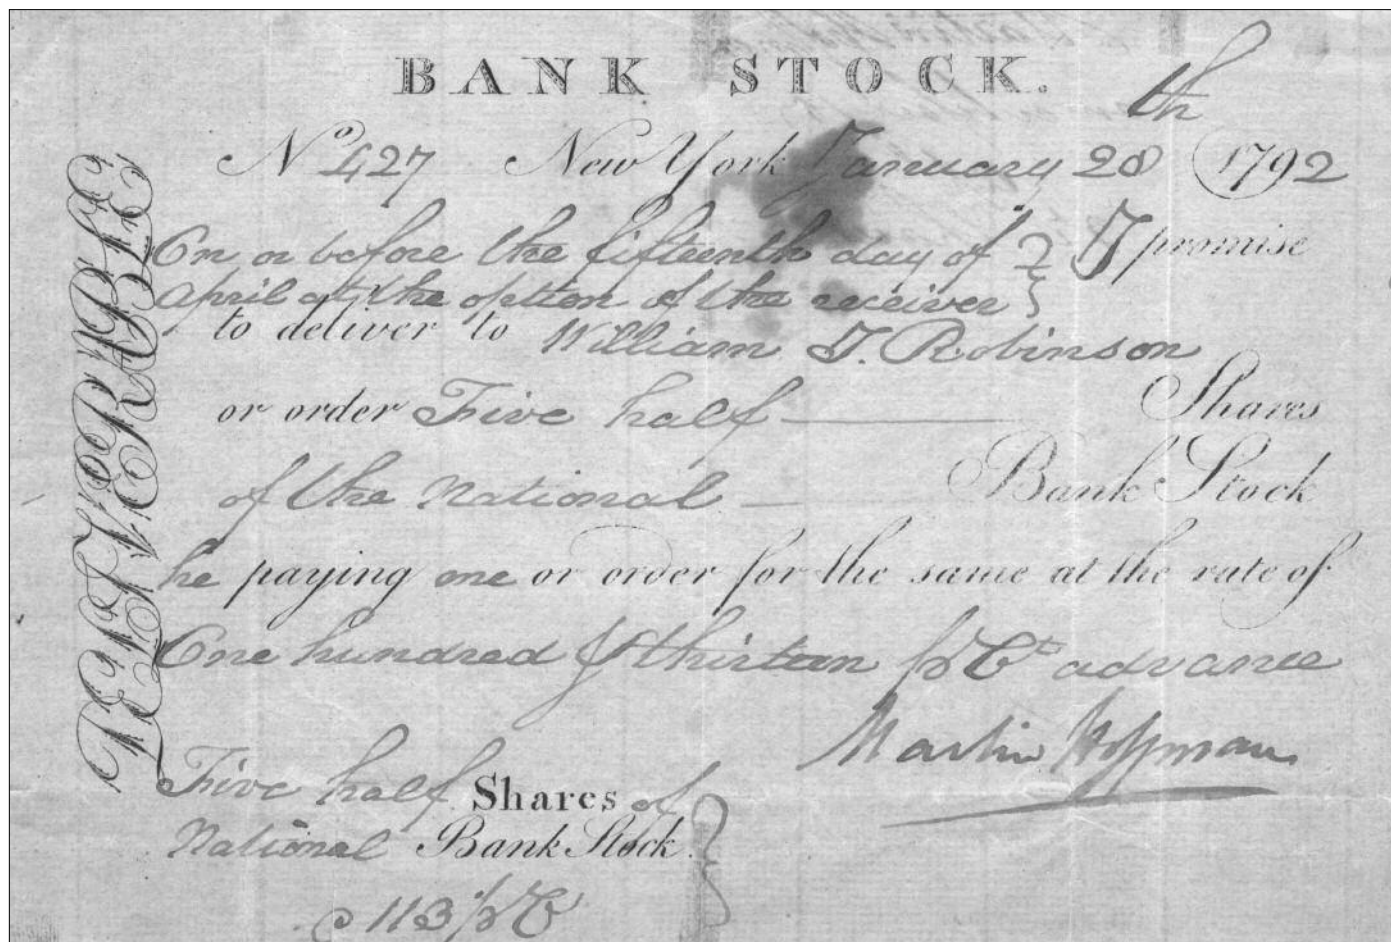 BANK STOCK.
No 427 New York January 28th 1792
On or before the fifteenth day of } I promise
April at the option of the receiver }
to deliver to William T. Robinson
or order Five half Shares
of the National Bank Stock
he paying me or order for the same at the rate of
One hundred & thirteen pr Ct advance
Martin Hoffman
Five half Shares of
National Bank Stock
@ 113 pr Ct
DELIVERABLE